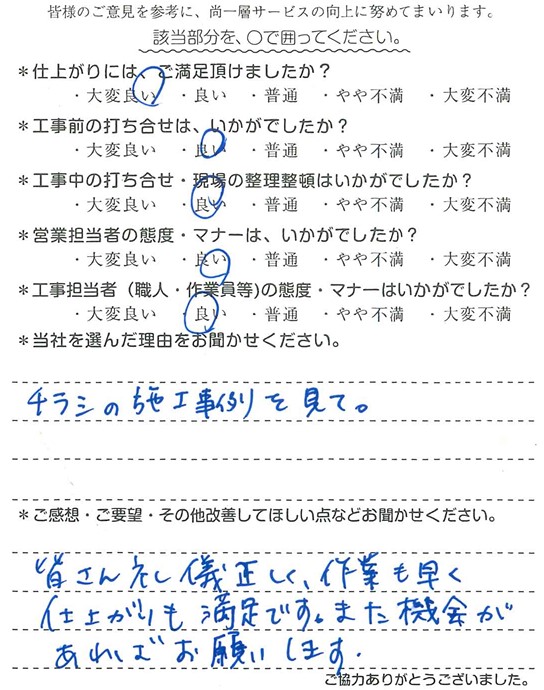 皆様のご意見を参考に、尚一層サービスの向上に努めてまいります。
該当部分を、〇で囲ってください。
＊仕上がりには、ご満足頂けましたか？
・大変良い ・良い ・普通 ・やや不満 ・大変不満
＊工事前の打ち合せは、いかがでしたか？
・大変良い ・良い ・普通 ・やや不満 ・大変不満
＊工事中の打ち合せ・現場の整理整頓はいかがでしたか？
・大変良い ・良い ・普通 ・やや不満 ・大変不満
＊営業担当者の態度・マナーは、いかがでしたか？
・大変良い ・良い ・普通 ・やや不満 ・大変不満
＊工事担当者（職人・作業員等)の態度・マナーはいかがでしたか？
・大変良い ・良い ・普通 ・やや不満 ・大変不満
＊当社を選んだ理由をお聞かせください。
チラシの施工事例を見て。
＊ご感想・ご要望・その他改善してほしい点などお聞かせください。
皆さん礼儀正しく、作業も早く
仕上がりも満足です。また機会が
あればお願いします.
ご協力ありがとうございました。